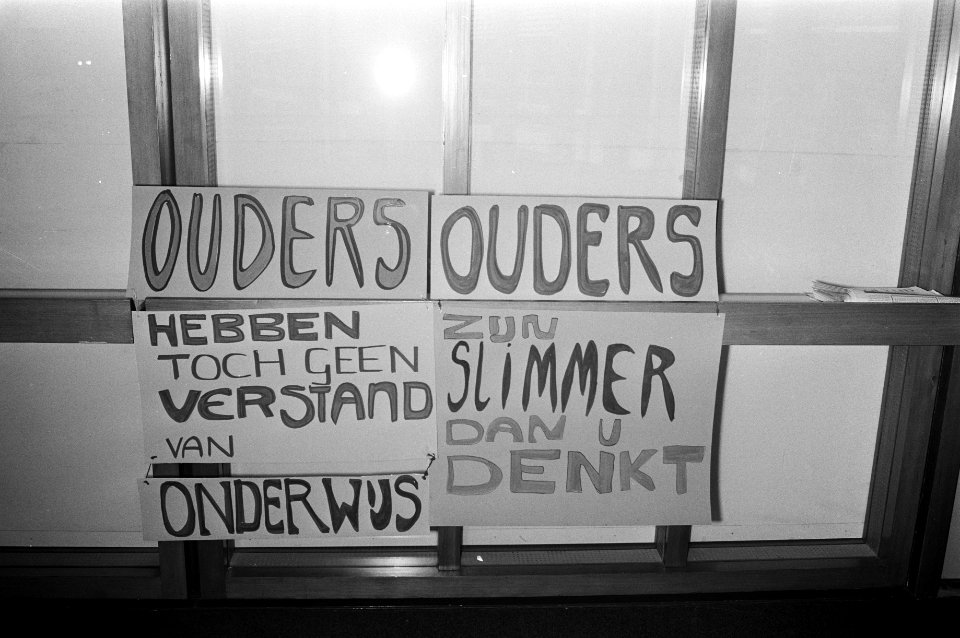 OUDERS
HEBBEN
TOCH GEEN
VERSTAND
VAN
ONDERWIJS
OUDERS
ZIJN
SLIMMER
DAN U
DENKT